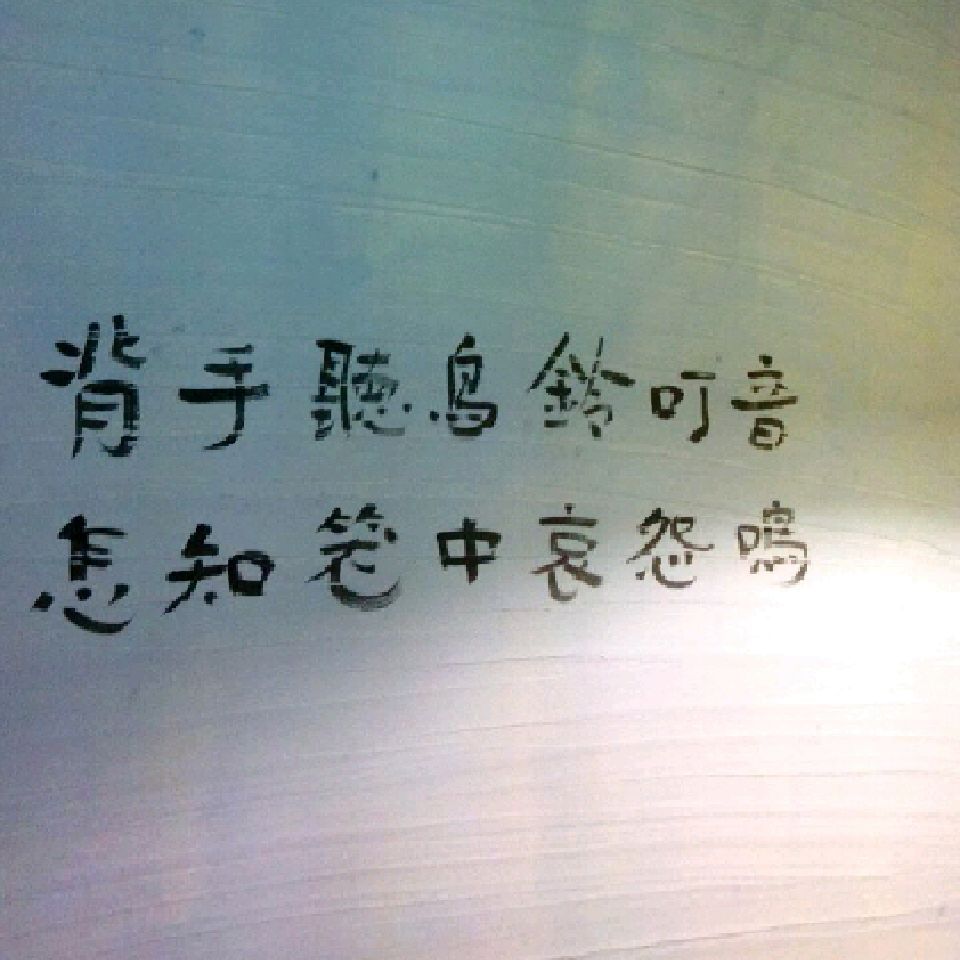 背手聽鳥鈴叮音
怎知笼中哀怨鳴